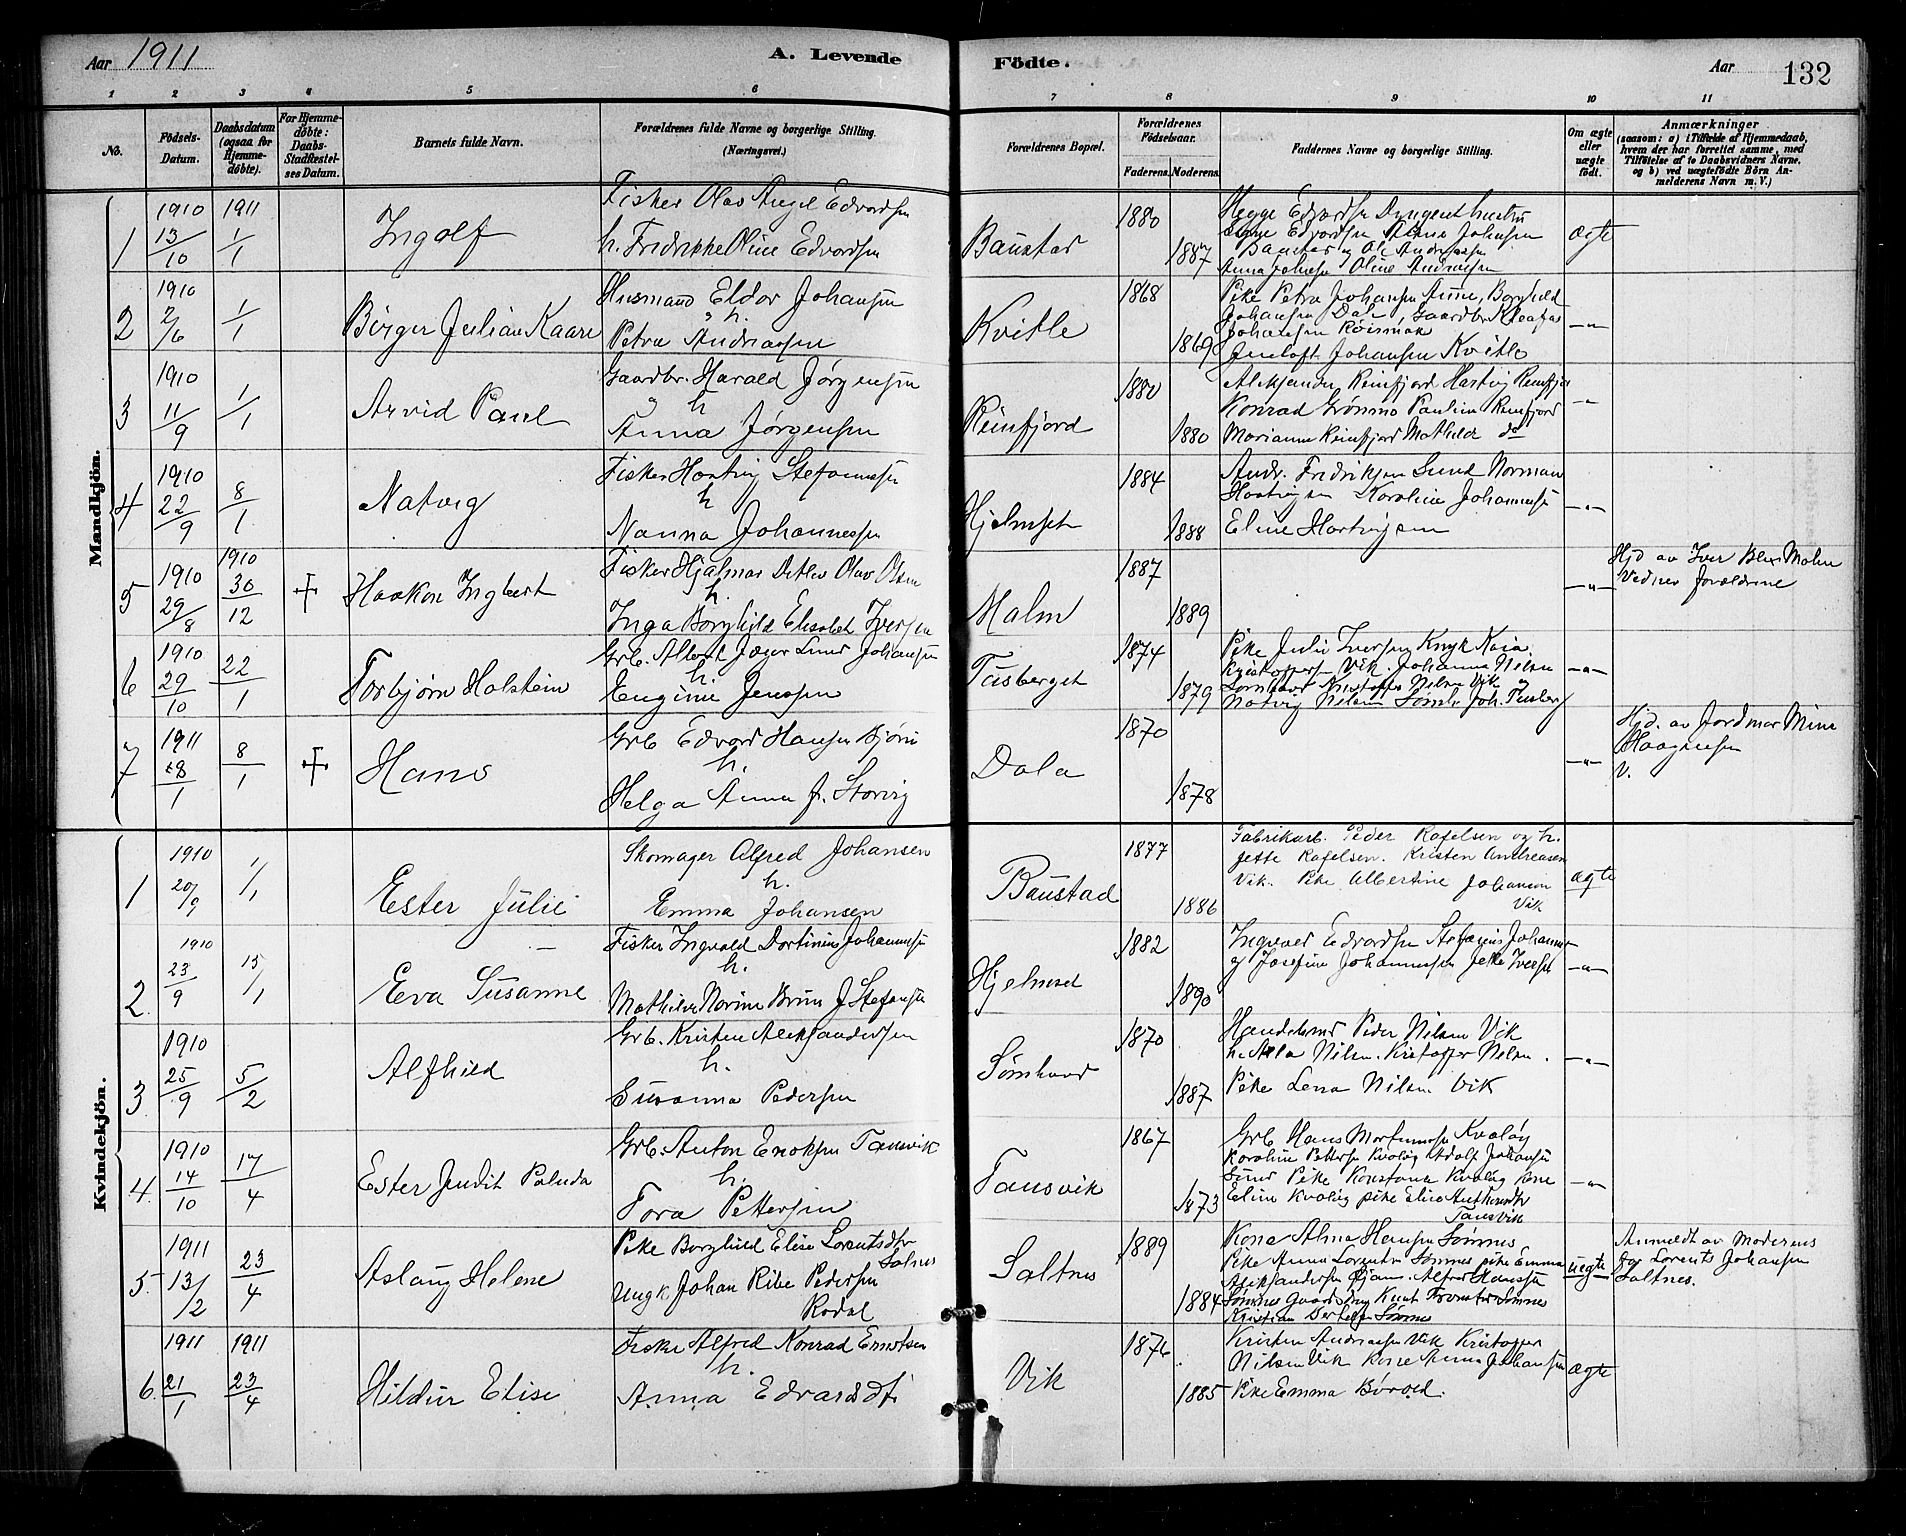 Aar 1911
A. Levende Födte.
Aar 132
1 2 3 4 5 6 7 8 9 10 11
No.
Födsels-Datum.
Daabsdatum (ogsaa for Hjemme-döbte).
For Hjemme-døbte: Daabs-Stadfæstel-ses Datum.
Barnets fulde Navn.
Forældrenes fulde Navne og borgerlige Stilling. (Næringsvei.)
Forældrenes Bopæl.
Forældrenes Födselsaar.
Faderens. Moderens.
Faddernes Navne og borgerlige Stilling.
Om ægte eller uægte födt.
Anmærkninger
(saasom: a) i Tilfælde af Hjemmedaab,
hvem der har forrettet samme, med
Tilföielse af to Daabsvidners Navne,
og b) ved uægtefödte Börn An-
melderens Navn m. V.)
Mandkjön.
1 1910 13/10 1911 1/1 Ingolf
Fisker Olav Angel Edvardsen
h. Fredrikke Oline Edvardsen
Baustad 1880 1887
Anna Johnsen Oline Andreassen
ægte
2 1910 2/6 1/1 Birger Julian Kaare
Husmand Eldor Johansen
h.
Petra Andreassen
Kvitle 1868 1869
Pike Petra Johansen Anne, Borghild
Johansen Dale, Gaardbr. Kleofas
Johansen Röismak
Johansen Kvitle
— " —
3 1910 11/9 1/1 Arvid Paul
Gaardbr. Harald Jørgensen
h
Anna Jørgensen
Reinfjord 1880 1880
Aleksander Reinfjord Hartvig Reinfjor
Konrad Grönmo Pauline Reinfjord
Marianne Reinfjord Mathilde do
— " —
4 1910 22/9 8/1 Natvig
Fisker Hartvig Stefanussen
h
Nanna Johannessen
Hjelmset 1884 1888
Andr. Fredriksen Sund Norman
Hartvigsen Karoline Johanness
Eline Hartvigsen
— " —
5 1910 29/8 1910 30/12 + Haakon Ingbert
Fisker Hjalmar Detlev Olav Olsen
h.
Inga Borghild Elisabet Iversen
Malm 1887 1889
— " —
Hjd av Iver Malm
Vidner forældrene
6 1910 29/10 22/1 Torbjørn Holstein
Grb. Albert Jæger Lund Johansen
h.
Euginie Jenssen
1874 1879
Pike Julie Iversen Kaia
Kristoffersen Vik. Johanna Nilsen
Sørnhavd Kristoffer Nilsen Vik
Natvig Nilsen
— " —
7 1911 8/1 8/1 + Hans
Grb Edvard Hansen Bjørn
h.
Helga Anna J. Storvig
Dala 1870 1878
— " —
Hjd. av Jordmor Mina
Haagensen
V.
Kvindekjön.
1 1910 20/9 1/1 Ester Julie
Skomager Alfred Johansen
h.
Emma Johansen
Baustad 1877 1886
Fabrikarb. Peder Rafelsen og h.
Jette Rafelsen. Kristen Andreasen
Vik. Pike Albertine Johansen
Vik
ægte
2. 1910 23/9 15/1 Eva Susanne
Fisker Ingvald Dortinius Johanness
h.
Mathilde Norine Brun J. Stefanss
Hjelmset 1882 1890
Ingvald Edvardsen Stefanus Johann
og Josefine Johannessen Jette Iversen
— " —
3. 1910 25/9 5/2 Alfhild
Grb. Kristen Aleksandersen
h.
Susanna Pedersen
Sømhovd 1870 1887
Handelsmd Peder Nilsen Vik
h. Alla Nilsen. Kristoffer Nilsen.
Pike Lena Nilsen Vik
— " —
4. 1910 14/10 17/4 Ester Judit Paluda
Grb. Anton Enoksen Tansvik
h.
Tora Pettersen
Tansvik 1867 1873
Grb Hans Mortensen Kvaløy
Karoline Pettersen Kvaløy Adolf Johansen
Sund Pike Konstance Kvaløy Kone
Eline Kvaløy pike Elise
Tansvik
— " —
5. 1911 13/2 23/4 Aslaug Helene
Pike Borghild Elise Lorentsdtr
Salnes
Ungk Johan Ribe Pedersen
Rodal
Saltnes 1889 1884
Kona Alma Hansen Sømnes
Pike Anna Lorentsen Sømnes pike Emma
Aleksandersen Alfred Hanssen
Sømnes Knut Sømnes
Kristian Sømnes
uegte
Anmeldt av Moderens
Far Lorents Johansen
Saltnes.
6. 1911 21/1 1911 23/4 Hildur Elise
Fisker Alfred Konrad Ernotsen
h.
Anna Edvardsdtr
Vik 1876 1885
Kristen Andreassen Vik Kristoffer
Nilsen Vik Kone Anna Johansen
Pike Emma Børvold.
ægte